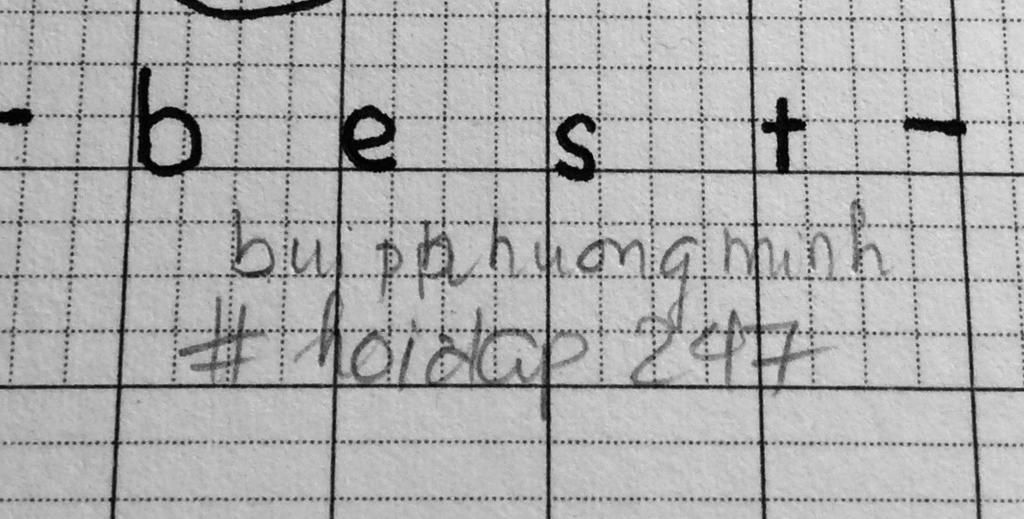 - b e s t -
bui pphhuong minh
# hoidap 247